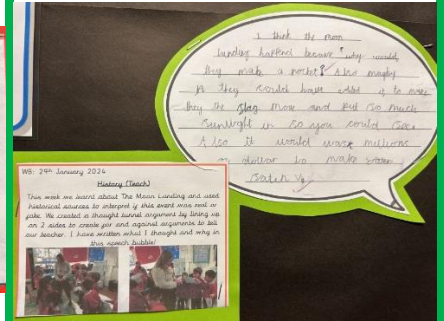 I think the moon
landing happend because why would
they make a rocket? Also maybey
they could have edited it to make
they the flag move and put so much
sunlight in so you could see.
Also it would
millions
dollar to make
WB: 29th January 2024
History (Teach)
This week we learnt about The Moon Landing and used
historical sources to interpret if this event was real or
fake. We created a thought tunnel argument by lining up
on 2 sides to create for and against arguments to tell
our teacher. I have written what I thought and why in
this speech bubble!